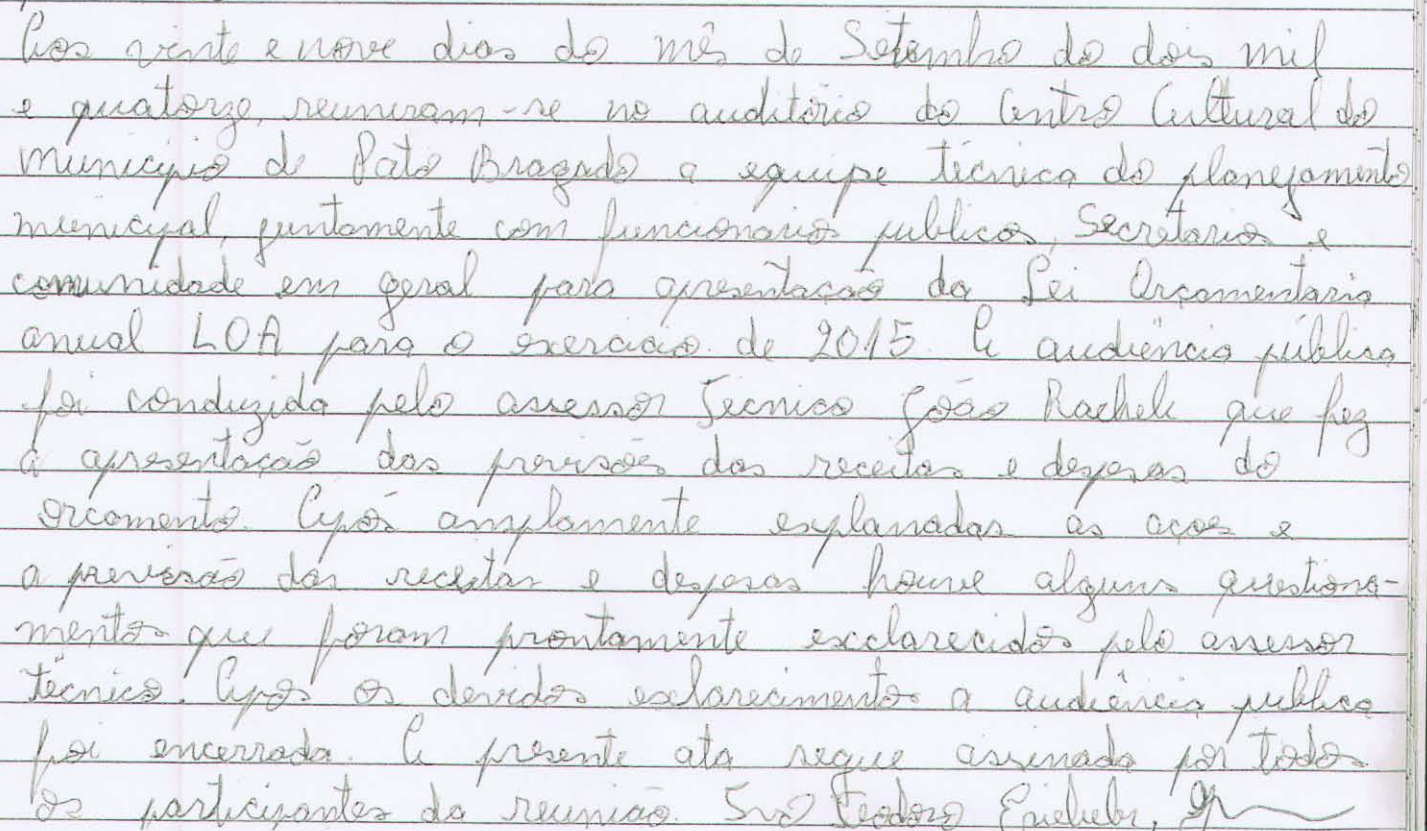 Aos vinte e nove dias do mês de Setembro de dois mil
e quatorze, reuniram-se no auditório do Centro Cultural do
município de Pato Bragado a equipe técnica do planejamento
municipal, juntamente com funcionários publicos, Secretarios e
comunidade em geral para apresentação da Lei Orçamentaria
anual LOA para o exercicio de 2015. A audiência pública
foi conduzida pelo assessor Tecnico João que fez
a apresentação das previsões das receitas e despesas do
orcamento. Após amplamente explanadas as açoes e
a previsão das receitas e despesas houve alguns questiona-
mentos que foram prontamente exclarecidos pelo assessor
técnico. Após os devidos esclarecimentos a audiência publica
foi encerrada. A presente ata segue assinada por todos
os participantes da reunião.